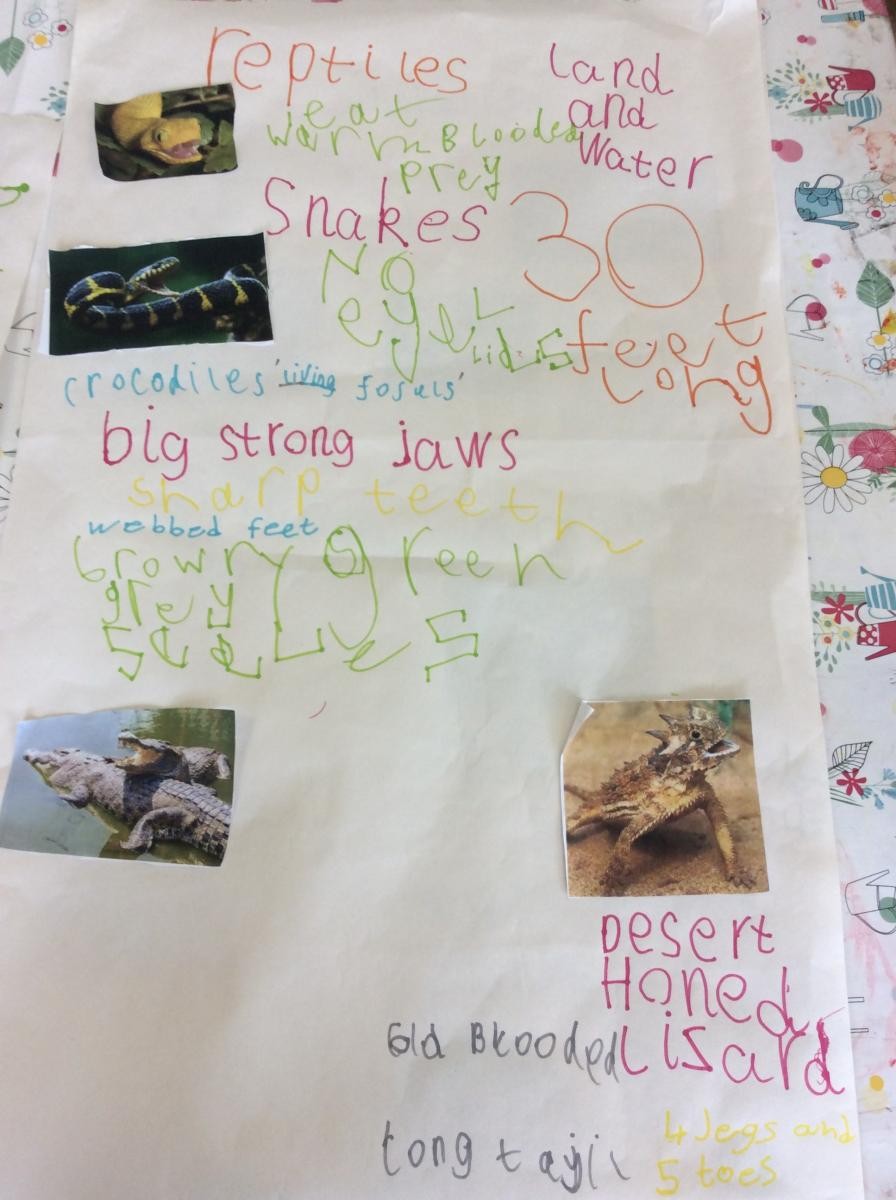 reptiles
eat
warm Blooded
prey
land
and
water
Snakes
No
eyeLids
30
feet
Long
crocodiles 'living fosals'
big strong jaws
sharp teeth
webbed feet
brown green
grey
scaLes
DeSert
Honed
Lizard
Cold Blooded
long tayil
4 legs and
5 toes